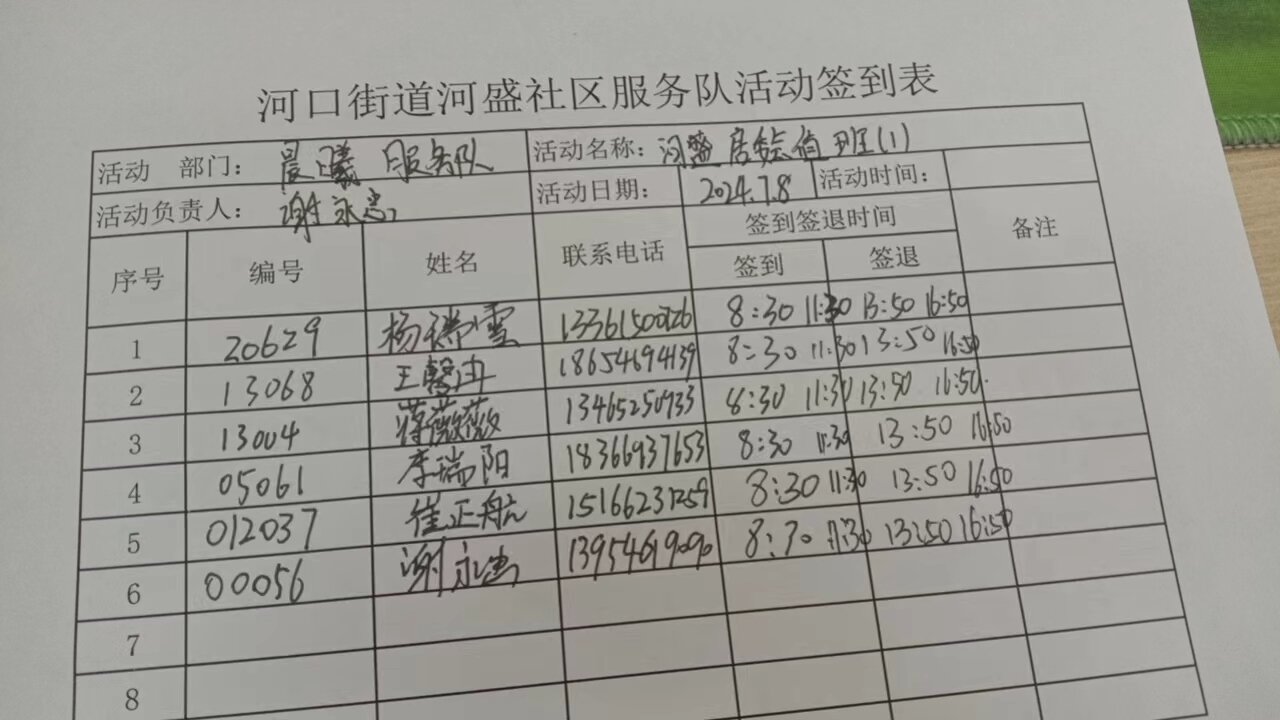 河口街道河盛社区服务队活动签到表
活动 部门： 晨曦 服务队 活动名称： 河盛 居 值班(1)
活动负责人： 谢永忠 活动日期： 2024.7.8 活动时间：
序号 编号 姓名 联系电话 签到签退时间 备注
签到 签退
1 20629 杨瑞雪 13361500726 8:30 11:30 13:50 16:50
2 13068 王馨 18654694139 8:30 11:30 13:50 16:50
3 13004 蒋薇薇 13465250933 8:30 11:30 13:50 16:50
4 05061 李瑞阳 18366937653 8:30 11:30 13:50 16:50
5 012037 崔正航 15166231259 8:30 11:30 13:50 16:50
6 00056 谢永忠 13954619090 8:30 11:30 13:50 16:50
7
8